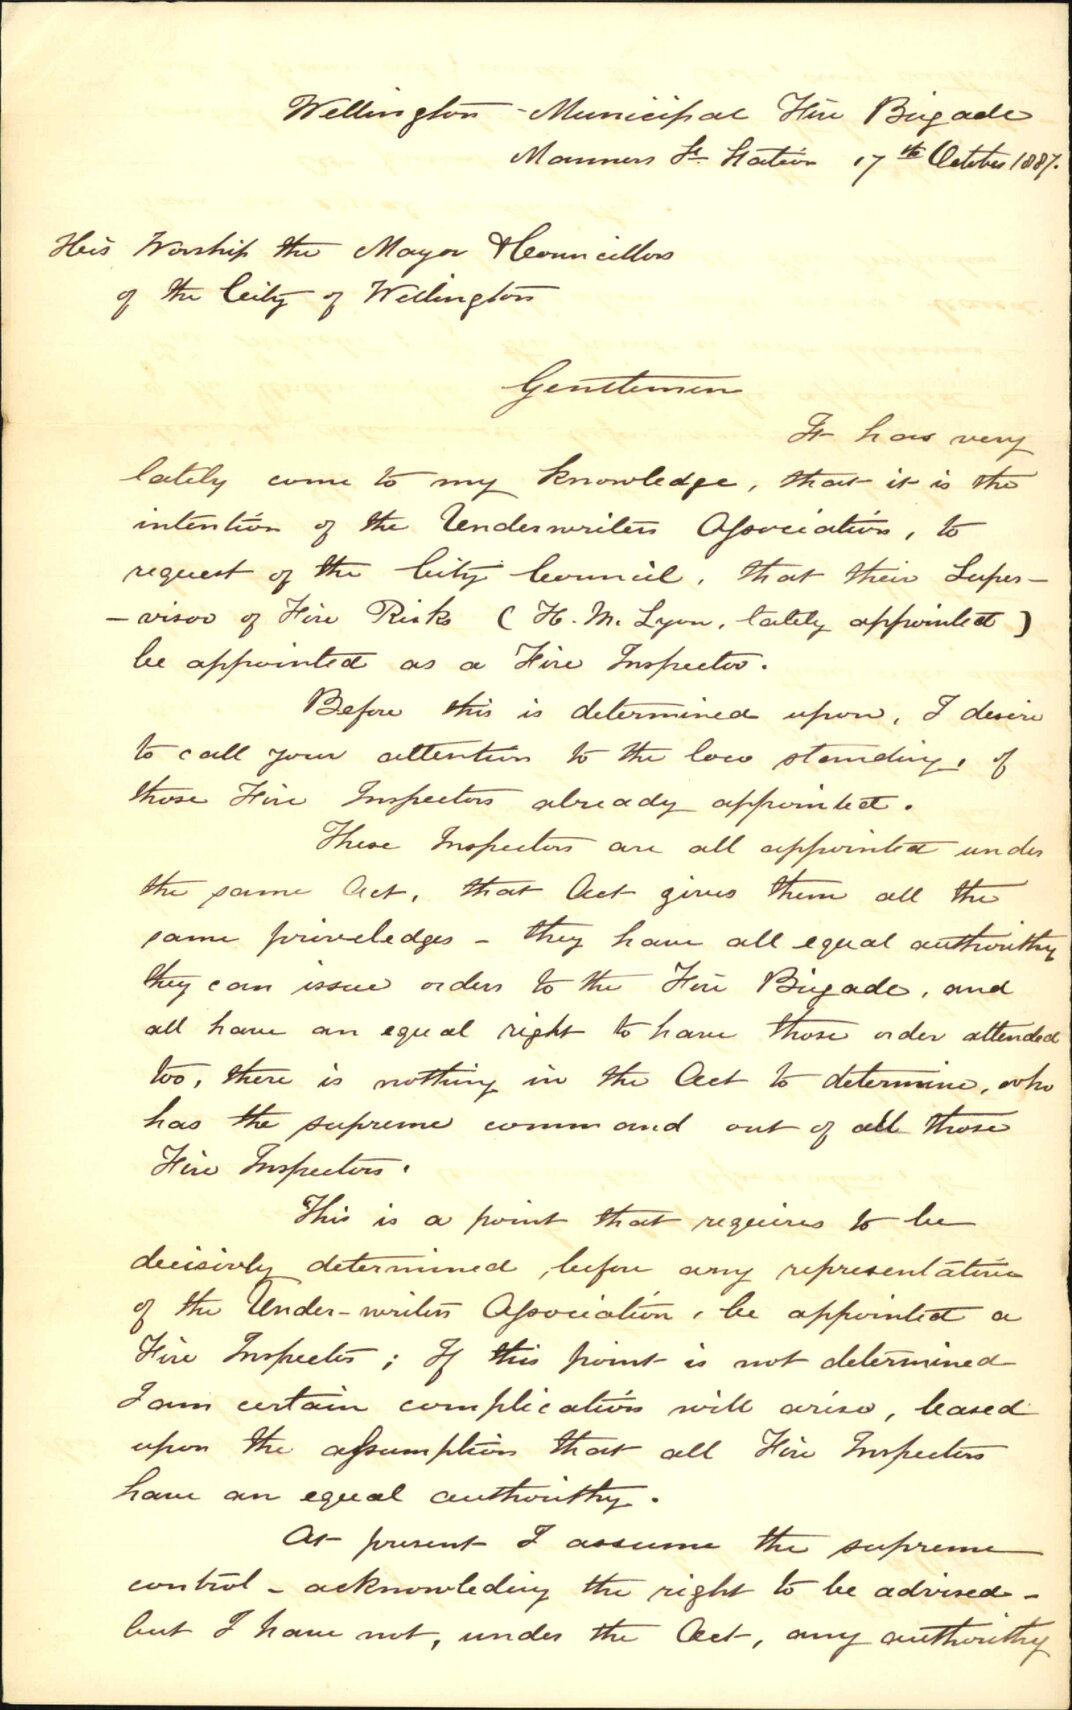 Wellington Municipal Fire Brigade
Manners St. Station 17th October 1887.
His Worship the Mayor & Councillors
of the City of Wellington
Gentlemen
It has very
lately come to my knowledge, that it is the
intention of the Underwriters Association, to
request of the City Council, that their Super-
-visor of Fire Risks (H. M. Lyon, lately appointed)
be appointed as a Fire Inspector.
Before this is determined upon, I desire
to call your attention to the loco standing, of
those Fire Inspectors already appointed.
These Inspectors are all appointed under
the same Act, that Act gives them all the
same priveledges - they have all equal authorithy
they can issue orders to the Fire Brigade, and
all have an equal right to have those order attended
too, there is nothing in the Act to determine, who
has the supreme command out of all those
Fire Inspectors.
This is a point that requires to be
decisivly determined, before any representative
of the Under-writers Association, be appointed a
Fire Inspector; If this point is not determined
I am certain complications will arise, based
upon the assumption that all Fire Inspectors
have an equal authorithy.
At present I assume the supreme
control - acknowleding the right to be advised -
but I have not, under the Act, any authorithy